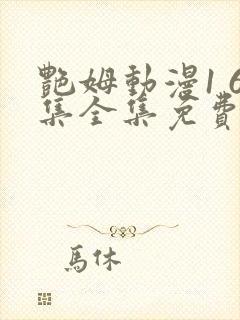 艷姆動漫1 6
集全集免費
馬休